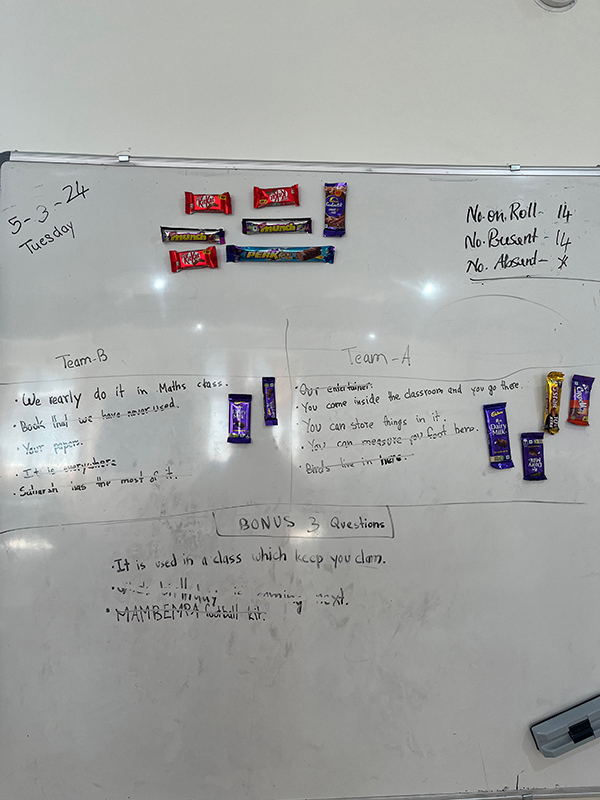 5-3-24
Tuesday
No. on. Roll- 14
No. Busent - 14
No. Absend- x
KitKat
KitKat
Munch
munch
KitKat
PERK
Team-B
• We rearly do it in Maths class.
• Book that we have never used.
• Your papers.
• It is everywhere
• has the most of it.
Team-A
• Our entertainer.
• You come inside the classroom and you go there.
• You can store things in it.
• You can measure you foot here.
• Birds live in here.
Cadbury
Dairy Milk
Dairy Milk
5 STAR
BONUS 3 Questions
• It is used in a class which keep you clam.
• is coming next.
• football kit.